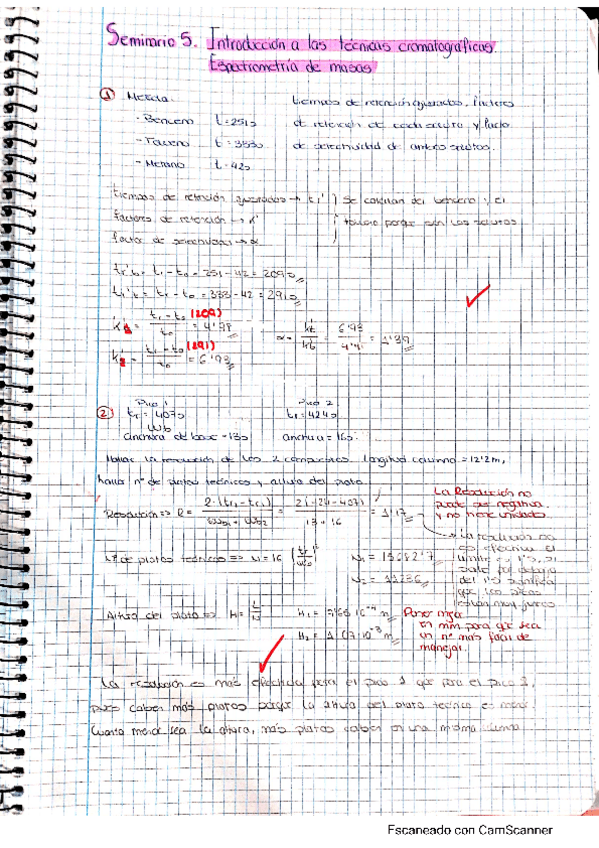 Seminario 5. Introducción a las técnicas cromatográficas.
Espectrometría de masas
① Mezcla. tiempos de retención ajustados, factores
- Benceno t=251s de retención de cada soluto y factor
- Tolueno t=333s de selectividad de ambos solutos.
- Metano t=42s
tiempos de retención ajustados → tr' } se calculan del benceno y el
factores de retención → k' tolueno porque son los solutos.
factor de selectividad → α
tr'b = tr - to = 251 - 42 = 209s
tr't = tr - to = 333 - 42 = 291s
k' = tr - to (209) / to = 4'98
k' = tr - to (291) / to = 6'93
α = k't / k'b = 6'93 / = 1'39
② Pico 1 Pico 2
tr = 407s tr = 424s
Wb
anchura de base = 13s anchura = 16s
Hallar la resolución de los 2 compuestos. longitud columna = 12'2m,
hallar nº de platos teóricos y altura del plato
Resolución => R = 2·(tr2 - tr1) / Wb1 + Wb2 = 2(424 - 407) / 13 + 16 = 1'17
La Resolución no
puede ser negativa
y no tiene unidades
La resolución no
es efectiva el
límite es 1'5, si
sale por debajo
del 1'5 significa
que los picos
están muy juntos
Nº de platos teóricos => N = 16 (tr / wb)² N1 = 15682'7
N2 = 11236
Altura del plato => H = L / N H1 = m
H2 = 1'07·10⁻³ m
Poner mejor
en mm para que sea
un nº más fácil de
manejar.
La resolución es más efectiva para el pico 1 que para el pico 2,
pues caben más platos porque la altura del plato teórico es menor.
Cuanto menor sea la altura, más platos caben en una misma
Escaneado con CamScanner